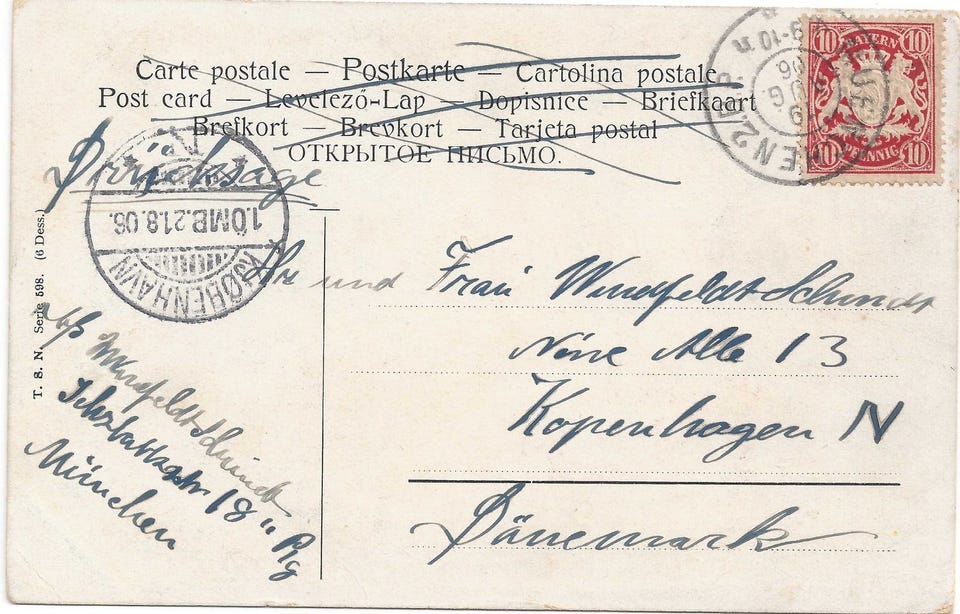 Carte postale — Postkarte — Cartolina postale
Post card — Levelező-Lap — Dopisnice — Briefkaart
Brefkort — Brevkort — Tarjeta postal
ОТКРЫТОЕ ПИСЬМО.
10 BAYERN 10
10 PFENNIG 10
MÜNCHEN 2
9-10 N
19 AUG 06
KJØBENHAVN
1.OMB.21.8.06.
T. S. N. Serie 598. (6 Dess.)
und Frau Windfeldt Schmidt
Alle 13
Kopenhagen N
Dänemark
Windfeldt Schmidt
18 II
München